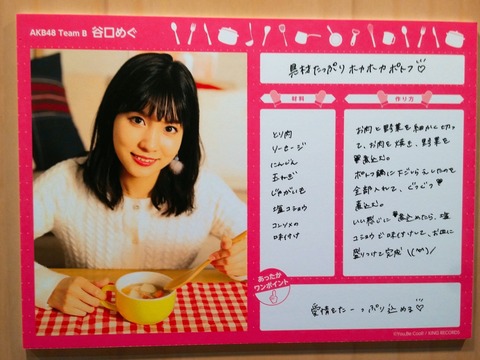 AKB48 Team B 谷口めぐ
具材たっぷりホカホカポトフ♡
材料
とり肉
ソーセージ
にんじん
玉ねぎ
じゃがいも
塩コショウ
コンソメの
味付け
作り方
お肉と野菜を細かく切っ
て、お肉を焼き、野菜を
煮込む。
ポトフ鍋に下ごしらえしたのを
全部入れて、ぐつぐつ
煮込む。
いい感じに煮込めたら、塩
コショウで味付けして、お皿に
盛りつけて完成 \(^^)/
あったか
ワンポイント
愛情をたーっぷり込める♡
©You, Be Cool! / KING RECORDS